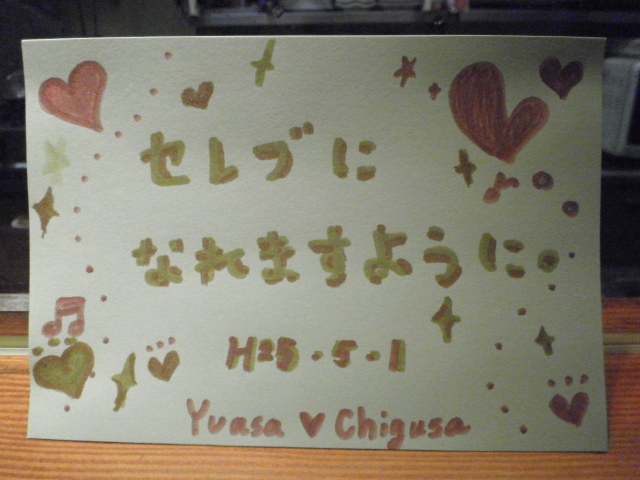 セレブに
なれますように。
H25.5.1
Yuasa ♥ Chigusa